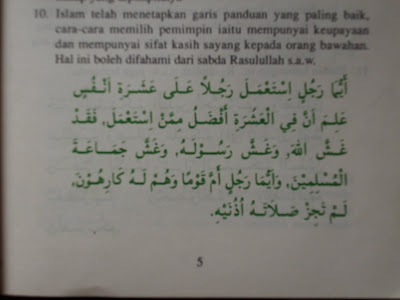 10. Islam telah menetapkan garis panduan yang paling baik,
cara-cara memilih pemimpin iaitu mempunyai keupayaan
dan mempunyai sifat kasih sayang kepada orang bawahan.
Hal ini boleh difahami dari sabda Rasulullah s.a.w.
أَيُّمَا رَجُلٍ اِسْتَعْمَلَ رَجُلاً عَلَى عَشَرَةِ أَنْفُسٍ
عَلِمَ اَنَّ فِي الْعَشَرَةِ أَفْضَلُ مِمَّنْ اِسْتَعْمَلَ, فَقَدْ
غَشَّ اللهَ, وَغَشَّ رَسُوْلَهُ, وَغَشَّ جَمَاعَةَ
الْمُسْلِمِيْنَ, وَأَيُّمَا رَجُلٍ أَمَّ قَوْمًا وَهُمْ لَهُ كَارِهُوْنَ,
لَمْ تَجِزْ صَلَاتُهُ اُذُنَيْهِ.
5